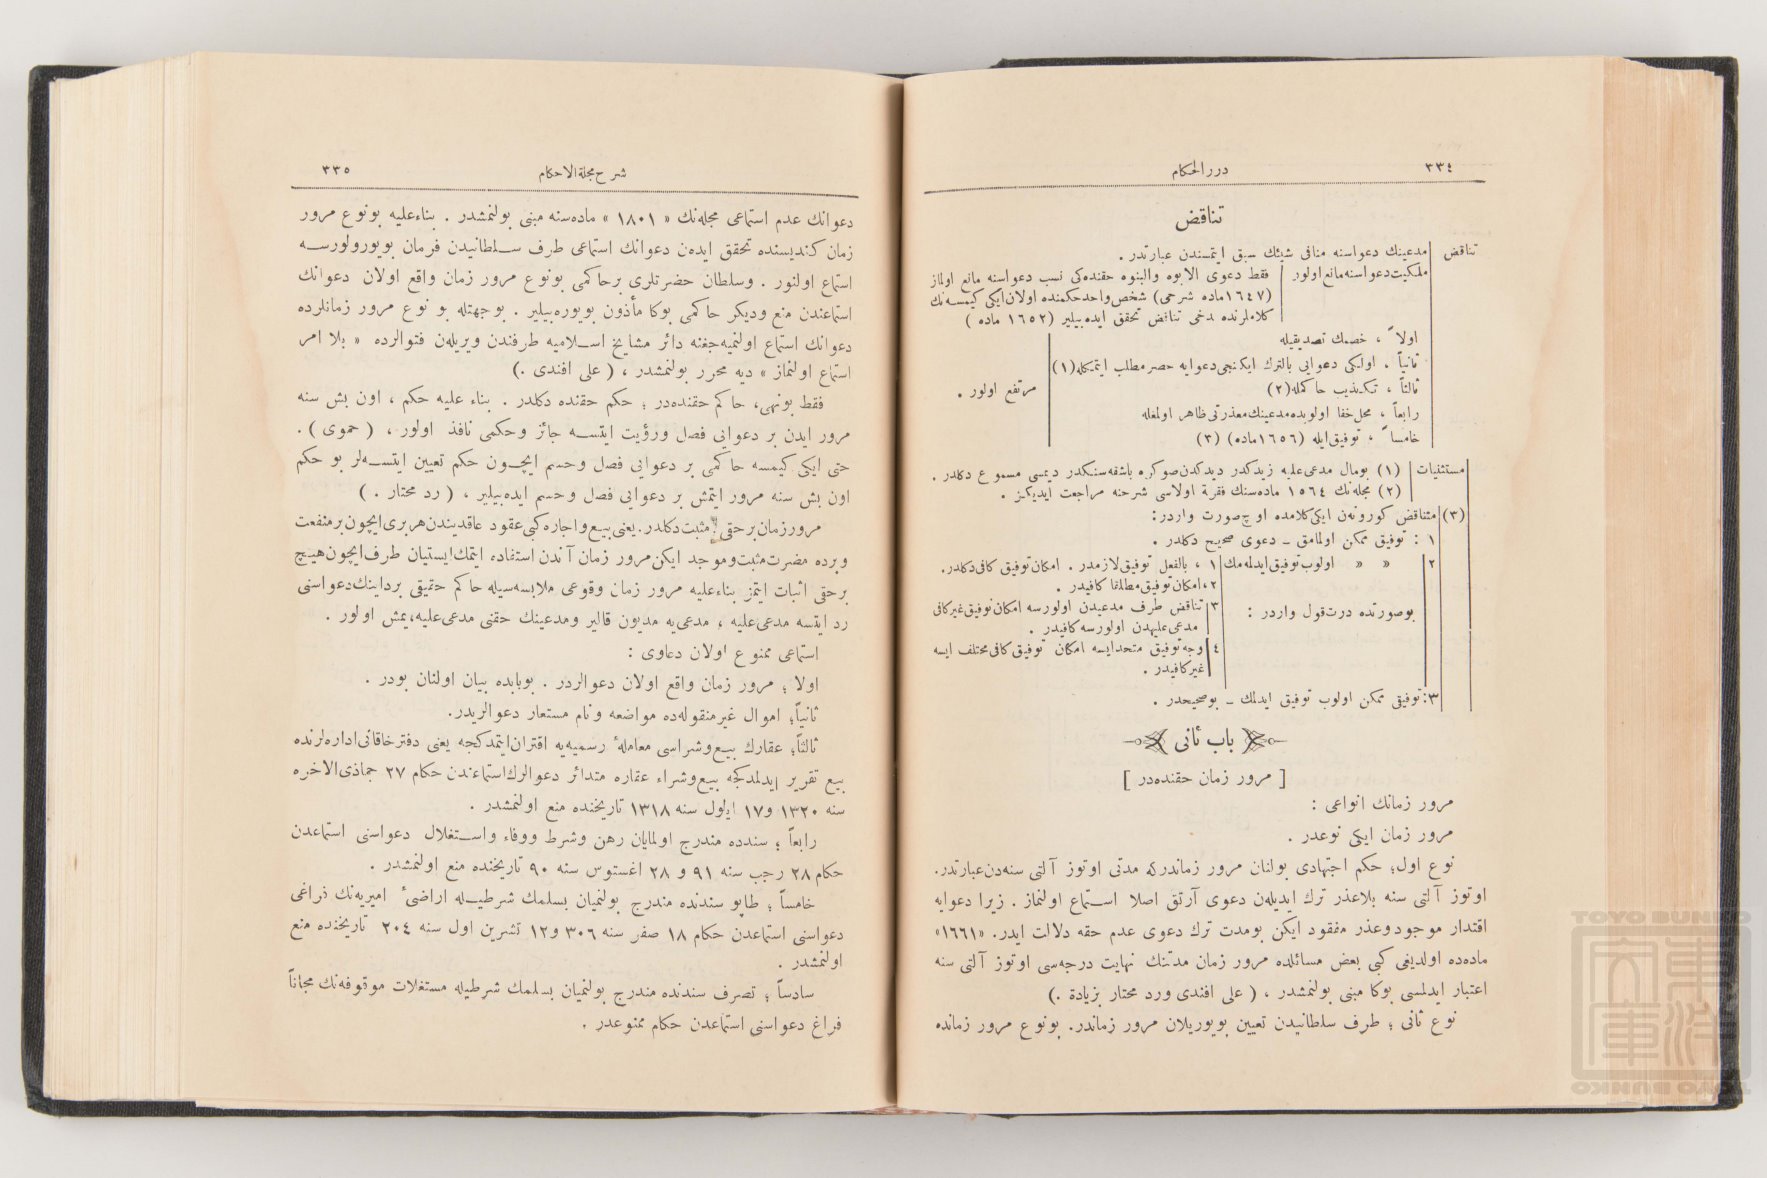 ٣٣٤
درر الحكام
تناقض
تناقض
مدعینك دعواسنه منافی شیئك سبق ایتمسندن عبارتدر .
ملكیت دعواسنه مانع اولور
فقط دعوی الابوه والبنوه حقنده‌كی نسب دعواسنه مانع اولماز
(١٦٤٧ ماده شرحی) شخص واحد حكمنده اولان ایكی كیمسه‌نك
كلاملرنده دخی تناقض تحقق ایده‌بیلیر (١٦٥٢ ماده )
اولاً ، خصمك تصدیقیله
ثانیاً ، اولكی دعوایی بالترك ایكنجی دعوایه حصر مطلب ایتمكله (١)
ثالثاً ، تكذیب حاكمله (٢)
مرتفع اولور .
رابعاً ، محل خفا اولوبده مدعینك معذرتی ظاهر اولمغله
خامساً ، توفیق ایله (١٦٥٦ ماده) (٣)
مستثنیات
(١) بومال مدعی علیه زیدكدر دیدكدن صوكره باشقه‌سنكدر دیمسی مسموع دكلدر .
(٢) مجله‌نك ١٥٦٤ ماده‌سنك فقرۀ اولاسی شرحنه مراجعت ایدیكز .
(٣) متناقض كورونه‌ن ایكی كلامده اوچ صورت واردر:
١ : توفیق ممكن اولمامق ـ دعوی صحیح دكلدر .
٢ » » اولوب توفیق ایدله‌مك
١ ، بالفعل توفیق لازمدر . امكان توفیق كافی دكلدر.
٢ ، امكان توفیق مطلقا كافیدر .
بوصورتده درت قول واردر :
٣ تناقض طرف مدعیدن اولورسه امكان توفیق غیركافی
مدعی علیهدن اولورسه كافیدر .
٤ وجه توفیق متحد ایسه امكان توفیق كافی مختلف ایسه
غیركافیدر .
٣: توفیقی ممكن اولوب توفیق ایدلمك ـ بوصحیحدر .
باب ثانی
[ مرور زمان حقنده‌در ]
مرور زمانك انواعی :
مرور زمان ایكی نوعدر .
نوع اول؛ حكم اجتهادی بولنان مرور زماندركه مدتی اوتوز آلتی سنه‌دن عبارتدر.
اوتوز آلتی سنه بلاعذر ترك ایدیله‌ن دعوی آرتق اصلا استماع اولنماز . زیرا دعوایه
اقتدار موجود وعذر مفقود ایكن بومدت ترك دعوی عدم حقه دلالت ایدر. «١٦٦١»
ماده‌ده اولدیغی كبی بعض مسائلده مرور زمان مدتنك نهایت درجه‌سی اوتوز آلتی سنه
اعتبار ایدلمسی بوكا مبنی بولنمشدر ، ( علی افندی ورد محتار بزیادة .)
نوع ثانی ؛ طرف سلطانیدن تعیین بویوریلان مرور زماندر. بونوع مرور زمانده
شرح مجلة الاحكام
٣٣٥
دعوانك عدم استماعی مجله‌نك « ١٨٠١ » ماده‌سنه مبنی بولنمشدر . بناءعلیه بونوع مرور
زمان كندیسنده تحقق ایده‌ن دعوانك استماعی طرف سلطانیدن فرمان بویورولورسه
استماع اولنور . وسلطان حضرتلری برحاكمی بونوع مرور زمان واقع اولان دعوانك
استماعندن منع ودیكر حاكمی بوكا مأذون بویوره‌بیلیر . بوجهتله بو نوع مرور زمانلرده
دعوانك استماع اولنمیه‌جغنه دائر مشایخ اسلامیه طرفندن ویریله‌ن فتوالرده « بلا امر
استماع اولنماز » دیه محرر بولنمشدر ، ( علی افندی .)
فقط بونهی، حاكم حقنده‌در ؛ حكم حقنده دكلدر . بناء علیه حكم ، اون بش سنه
مرور ایدن بر دعوایی فصل ورؤیت ایتسه جائز وحكمی نافذ اولور ، ( حموی ) .
حتی ایكی كیمسه حاكمی بر دعوایی فصل وحسم ایچون حكم تعیین ایتسه‌لر بو حكم
اون بش سنه مرور ایتمش بر دعوایی فصل وحسم ایده‌بیلیر ، ( رد محتار . )
مرورزمان برحقی مثبت دكلدر. یعنی بیع واجاره كبی عقود عاقدیندن هربری ایچون برمنفعت
وبرده مضرت مثبت وموجد ایكن مرور زمان آندن استفاده ایتمك ایستیان طرف ایچون هیچ
برحقی اثبات ایتمز بناءعلیه مرور زمان وقوعی ملابسه‌سیله حاكم حقیقی برداینك دعواسنی
رد ایتسه مدعی علیه ، مدعی‌یه مدیون قالیر ومدعینك حقنی مدعی علیه، یمش اولور .
استماعی ممنوع اولان دعاوی :
اولا ؛ مرور زمان واقع اولان دعوالردر . بوبابده بیان اولنان بودر .
ثانیاً؛ اموال غیرمنقوله‌ده مواضعه ونام مستعار دعوالریدر.
ثالثاً؛ عقارك بیع وشراسی معاملۀ رسمیه‌یه اقتران ایتمدكجه یعنی دفترخاقانی اداره‌لرنده
بیع تقریر ایدلمدكجه بیع وشراء عقاره متدائر دعوالرك استماعندن حكام ٢٧ جماذی الاخره
سنه ١٣٢٠ و ١٧ ایلول سنه ١٣١٨ تاریخنده منع اولنمشدر .
رابعاً ؛ سندده مندرج اولمایان رهن وشرط ووفاء واستغلال دعواسنی استماعدن
حكام ٢٨ رجب سنه ٩١ و ٢٨ اغستوس سنه ٩٠ تاریخنده منع اولنمشدر .
خامساً ؛ طاپو سندنده مندرج بولنمیان بسلمك شرطیله اراضیٔ امیریه‌نك فراغی
دعواسنی استماعدن حكام ١٨ صفر سنه ٣٠٦ و ١٢ تشرین اول سنه ٢٠٤ تاریخنده منع
اولنمشدر .
سادساً ؛ تصرف سندنده مندرج بولنمیان بسلمك شرطیله مستغلات موقوفه‌نك مجاناً
فراغ دعواسنی استماعدن حكام ممنوعدر .
TOYO BUNKO
東洋文庫
TOYO BUNKO